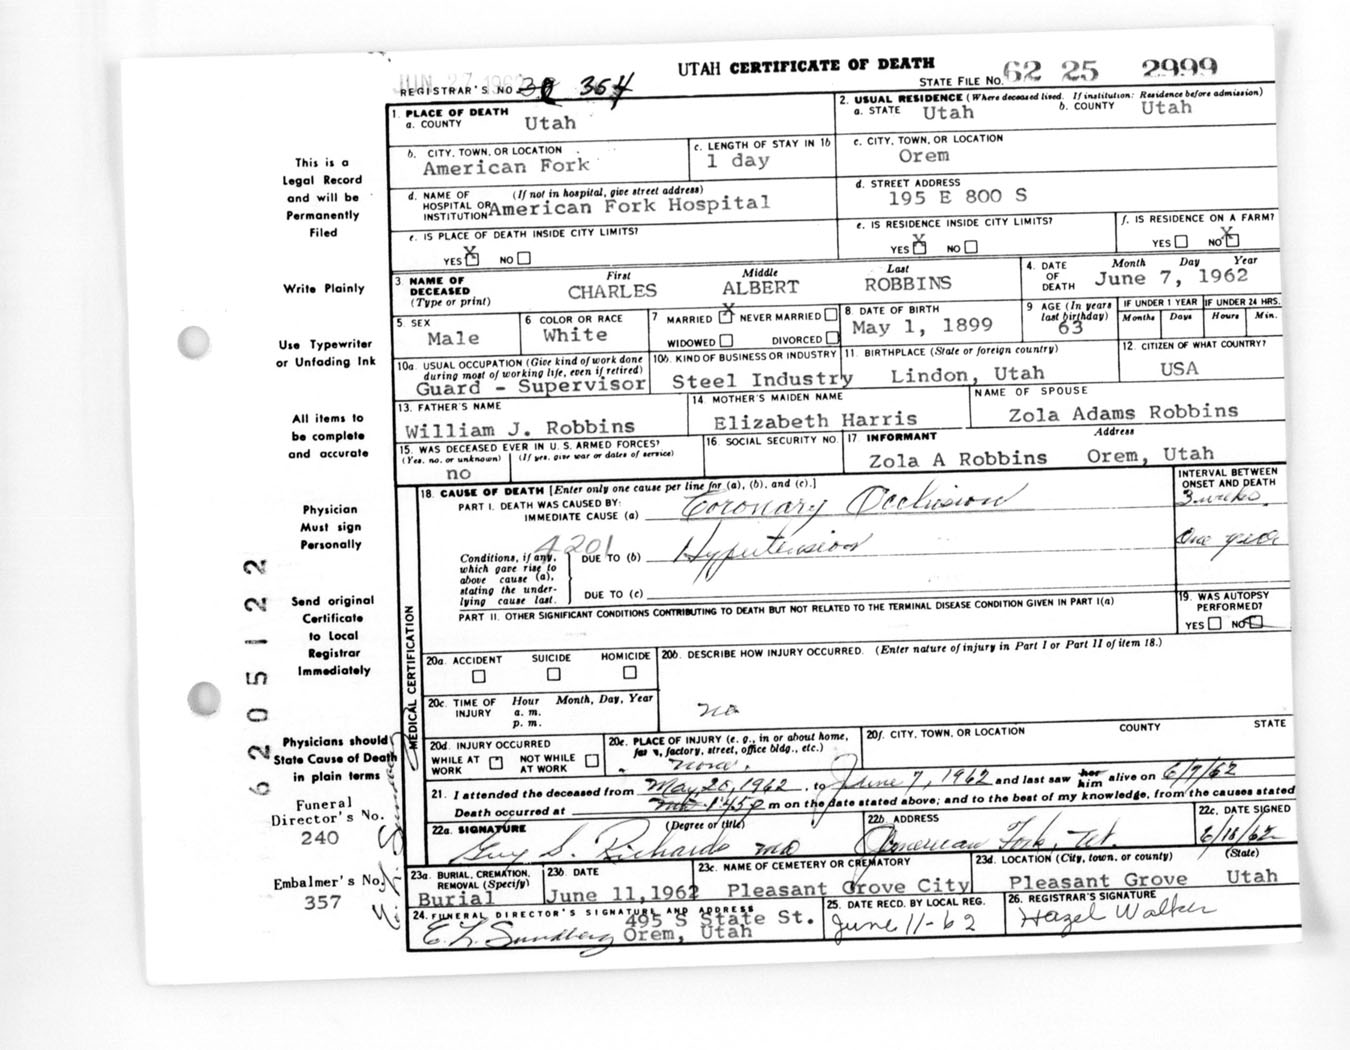 JUN 27 1962
UTAH CERTIFICATE OF DEATH
REGISTRAR'S NO. 354
STATE FILE NO. 62 25 2999
1. PLACE OF DEATH
a. COUNTY Utah
2. USUAL RESIDENCE (Where deceased lived. If institution: Residence before admission)
a. STATE Utah b. COUNTY Utah
b. CITY, TOWN, OR LOCATION
American Fork
c. LENGTH OF STAY IN 1b
1 day
c. CITY, TOWN, OR LOCATION
Orem
d. NAME OF (If not in hospital, give street address)
HOSPITAL OR
INSTITUTION American Fork Hospital
d. STREET ADDRESS
195 E 800 S
e. IS PLACE OF DEATH INSIDE CITY LIMITS?
YES X NO
e. IS RESIDENCE INSIDE CITY LIMITS?
YES X NO
f. IS RESIDENCE ON A FARM?
YES NO X
3. NAME OF DECEASED (Type or print)
First Middle Last
CHARLES ALBERT ROBBINS
4. DATE OF DEATH Month Day Year
June 7, 1962
5. SEX
Male
6 COLOR OR RACE
White
7 MARRIED X NEVER MARRIED
WIDOWED DIVORCED
8 DATE OF BIRTH
May 1, 1899
9 AGE (In years last birthday)
63
IF UNDER 1 YEAR
Months Days
IF UNDER 24 HRS.
Hours Min.
10a. USUAL OCCUPATION (Give kind of work done
during most of working life, even if retired)
Guard - Supervisor
10b. KIND OF BUSINESS OR INDUSTRY
Steel Industry
11. BIRTHPLACE (State or foreign country)
Lindon, Utah
12. CITIZEN OF WHAT COUNTRY?
USA
13. FATHER'S NAME
William J. Robbins
14. MOTHER'S MAIDEN NAME
Elizabeth Harris
NAME OF SPOUSE
Zola Adams Robbins
15. WAS DECEASED EVER IN U. S. ARMED FORCES?
(Yes, no, or unknown) (If yes, give war or dates of service)
no
16. SOCIAL SECURITY NO.
17 INFORMANT Address
Zola A Robbins Orem, Utah
18. CAUSE OF DEATH [Enter only one cause per line for (a), (b), and (c).]
PART I. DEATH WAS CAUSED BY:
IMMEDIATE CAUSE (a) Coronary Occlusion
INTERVAL BETWEEN
ONSET AND DEATH
3 weeks
4201
Conditions, if any,
which gave rise to
above cause (a),
stating the under-
lying cause last.
DUE TO (b) Hypertension
One year
DUE TO (c)
PART II. OTHER SIGNIFICANT CONDITIONS CONTRIBUTING TO DEATH BUT NOT RELATED TO THE TERMINAL DISEASE CONDITION GIVEN IN PART I(a)
19. WAS AUTOPSY
PERFORMED?
YES NO
20a. ACCIDENT SUICIDE HOMICIDE
20b. DESCRIBE HOW INJURY OCCURRED. (Enter nature of injury in Part I or Part II of item 18.)
no
20c. TIME OF INJURY Hour Month, Day, Year
a. m.
p. m.
20d. INJURY OCCURRED
WHILE AT WORK NOT WHILE AT WORK
20e. PLACE OF INJURY (e. g., in or about home,
farm, factory, street, office bldg., etc.)
none.
20f. CITY, TOWN, OR LOCATION COUNTY STATE
21. I attended the deceased from May 20, 1962, to June 7, 1962 and last saw her him alive on 6/7/62
Death occurred at 1:45 p m on the date stated above; and to the best of my knowledge, from the causes stated
22a. SIGNATURE (Degree or title)
Guy S. Richards MD
22b. ADDRESS
American Fork, Ut.
22c. DATE SIGNED
23a. BURIAL, CREMATION,
REMOVAL (Specify)
Burial
23b. DATE
June 11, 1962
23c. NAME OF CEMETERY OR CREMATORY
Pleasant Grove City
23d. LOCATION (City, town, or county) (State)
Pleasant Grove Utah
24. FUNERAL DIRECTOR'S SIGNATURE AND ADDRESS
E. L. Sundberg
495 S State St.
Orem, Utah
25. DATE RECD. BY LOCAL REG.
June 11-62
26. REGISTRAR'S SIGNATURE
Hazel Walker
MEDICAL CERTIFICATION
This is a
Legal Record
and will be
Permanently
Filed
Write Plainly
Use Typewriter
or Unfading Ink
All items to
be complete
and accurate
Physician
Must sign
Personally
Send original
Certificate
to Local
Registrar
Immediately
Physicians should
State Cause of Death
in plain terms
Funeral
Director's No.
240
Embalmer's No.
357
6205122